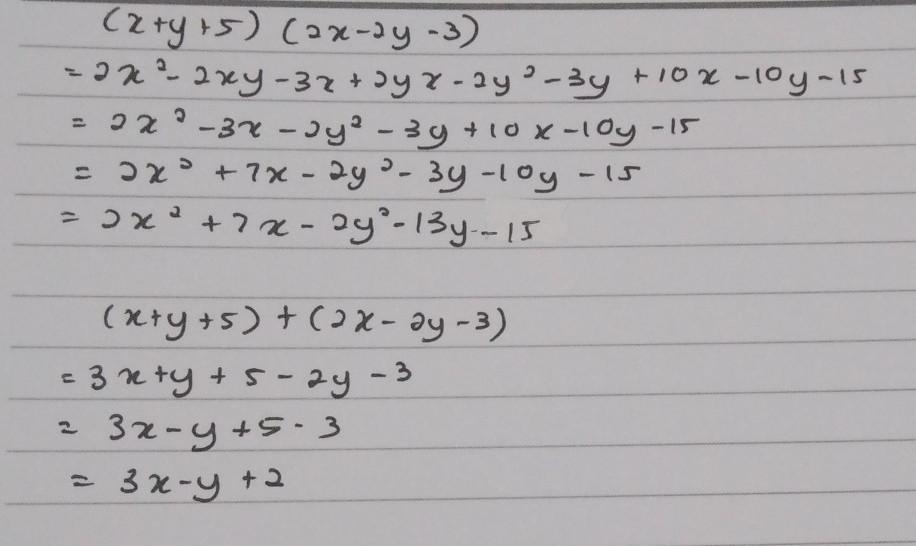 (x+y+5) (2x-2y-3)
= 2x² - 2xy - 3x + 2yx - 2y² - 3y + 10x - 10y - 15
= 2x² - 3x - 2y² - 3y + 10x - 10y - 15
= 2x² + 7x - 2y² - 3y - 10y - 15
= 2x² + 7x - 2y² - 13y - 15
(x+y+5) + (2x - 2y - 3)
= 3x+y + 5 - 2y - 3
= 3x - y + 5 - 3
= 3x - y + 2